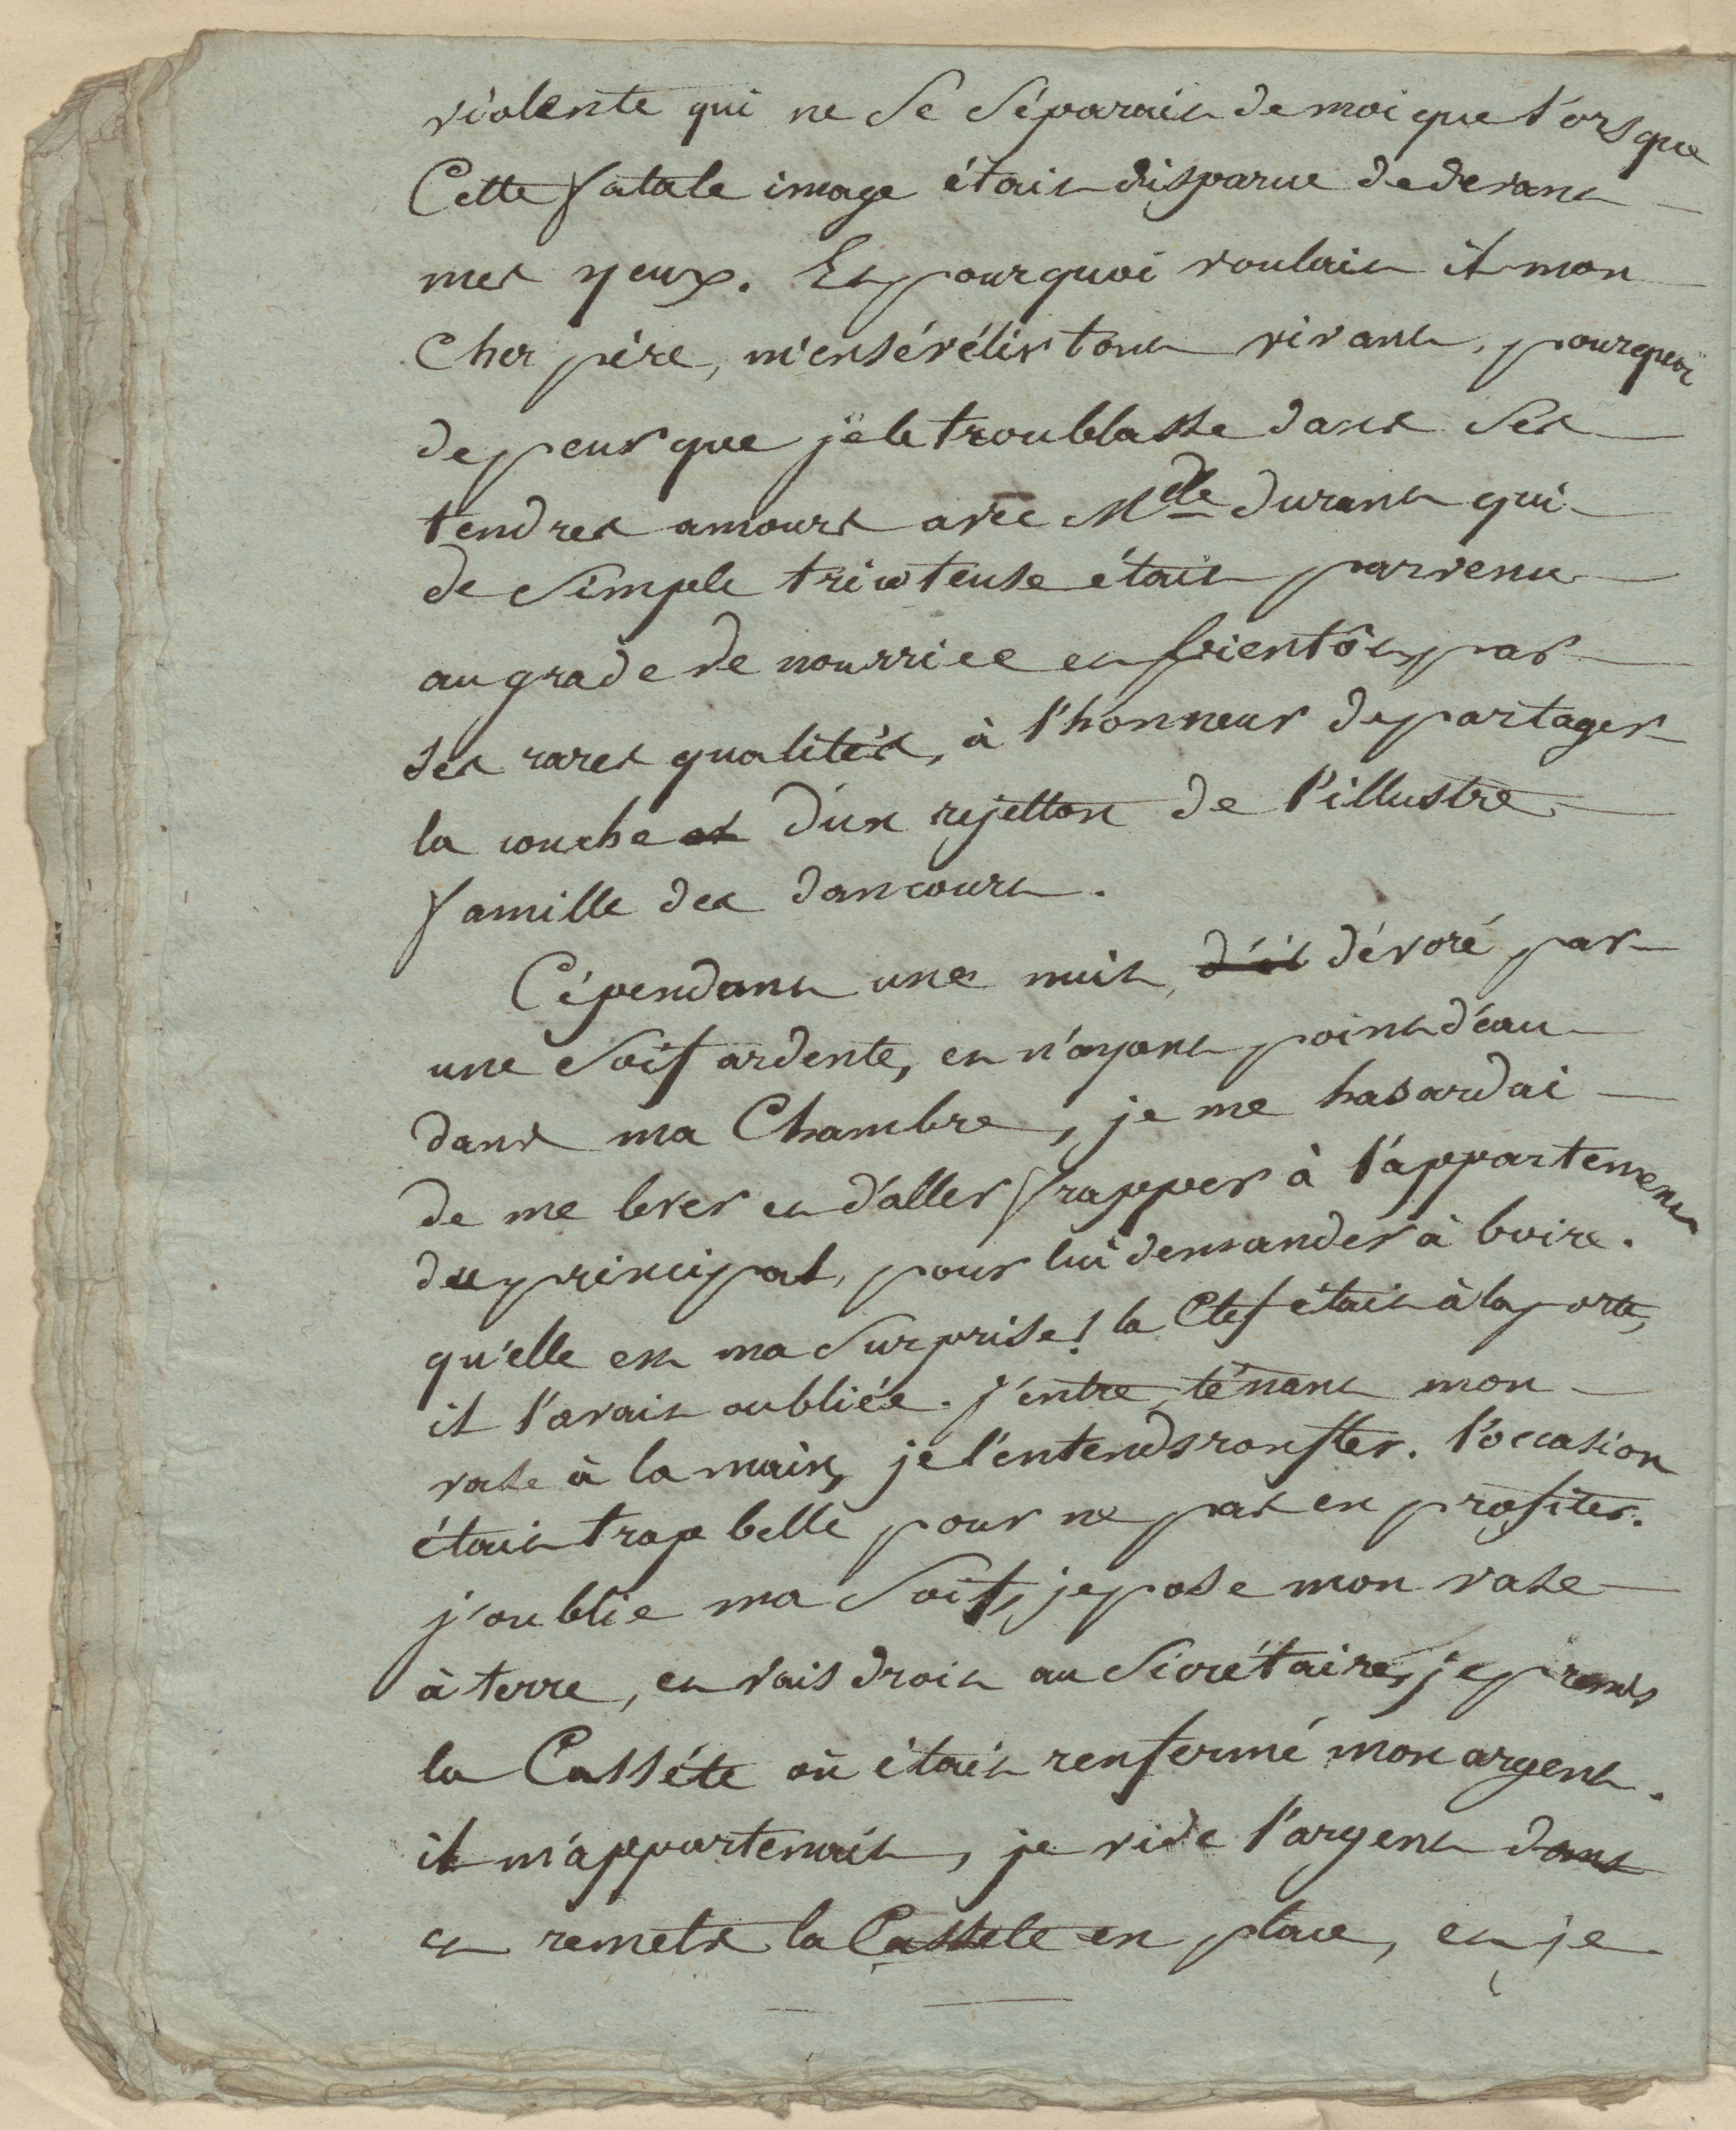 violente qui ne se séparait de moi que lorsque
Cette fatale image était disparue de devant
mes yeux. Et pourquoi voulait il mon
Cher père, m'ensévélir tout vivant, pourquoi
de peur que je le troublasse dans ses
tendres amours avec Mdlle durant qui
de simple tricoteuse était parvenue
au grade de nourrice et bientôt, par
ses rares qualités, à l'honneur de partager
la couche et d'un rejetton de l'illustre
famille des dancourt.
Cépendant une nuit, d'il dévoré par
une soif ardente, et n'ayant point d'eau
dans ma Chambre, je me hasardai
de me lever et d'aller frapper à l'appartement
du principal, pour lui demander à boire.
qu'elle est ma surprise! la Clef était à la porte,
il l'avait oubliée. j'entre, ténant mon
vase à la main, je l'entends ronfler. l'occasion
était trop belle pour ne pas en profiter.
j'oublie ma soif, je pose mon vase
à terre, et vais droit au sécrétaire, je prends
la Casséte où était renfermé mon argent.
il m'appartenait, je vide l'argent dans
et remets la Cassete en place, et je